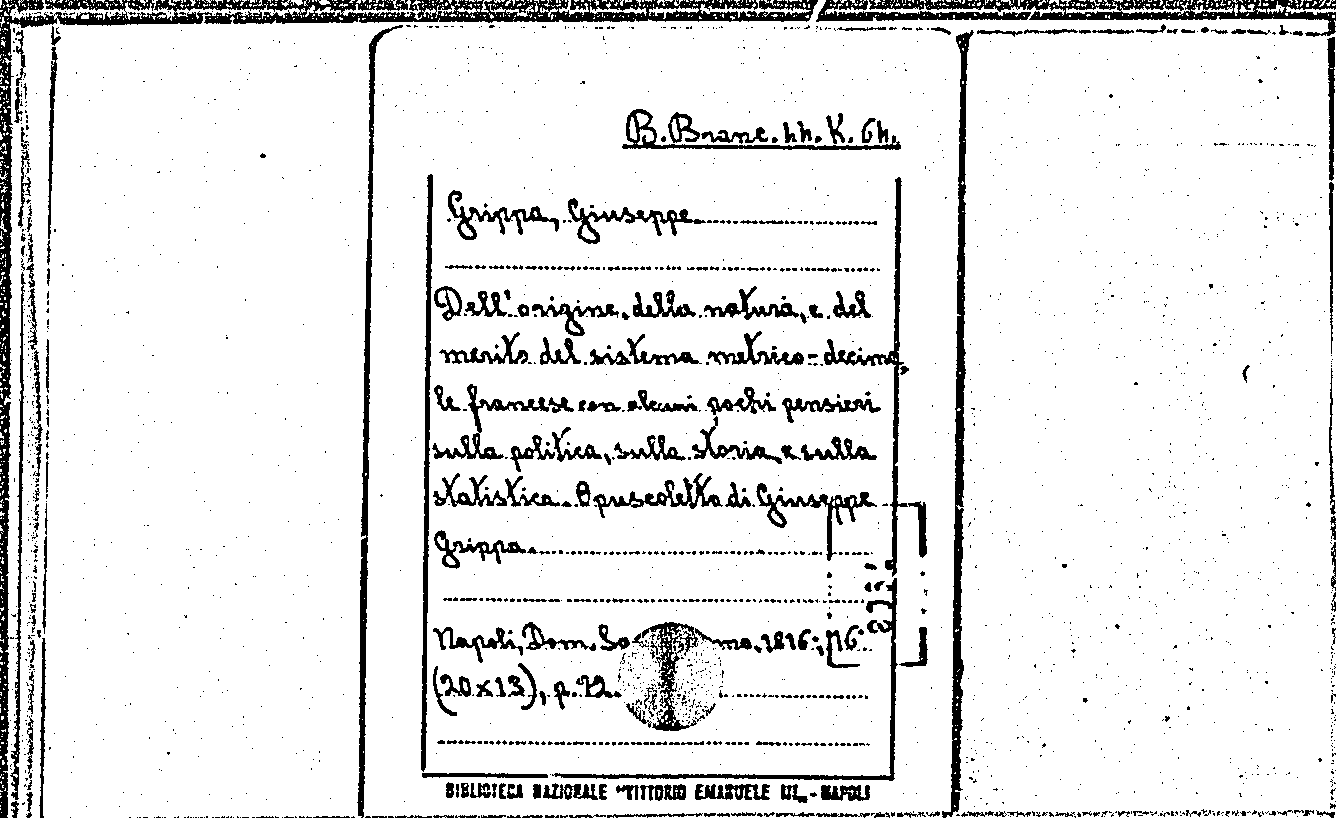 B. Branc. hh. K. 6h.
Grippa, Giuseppe
Dell'origine, della natura, e del
merito del sistema metrico-decima
le francese con alcuni pochi pensieri
sulla politica, sulla storia, e sulla
statistica. Opuscoletto di Giuseppe
Grippa.
Napoli, Dom. 1816; 16°
(20x13), p. 72.
BIBLIOTECA NAZIONALE "VITTORIO EMANUELE III" - NAPOLI